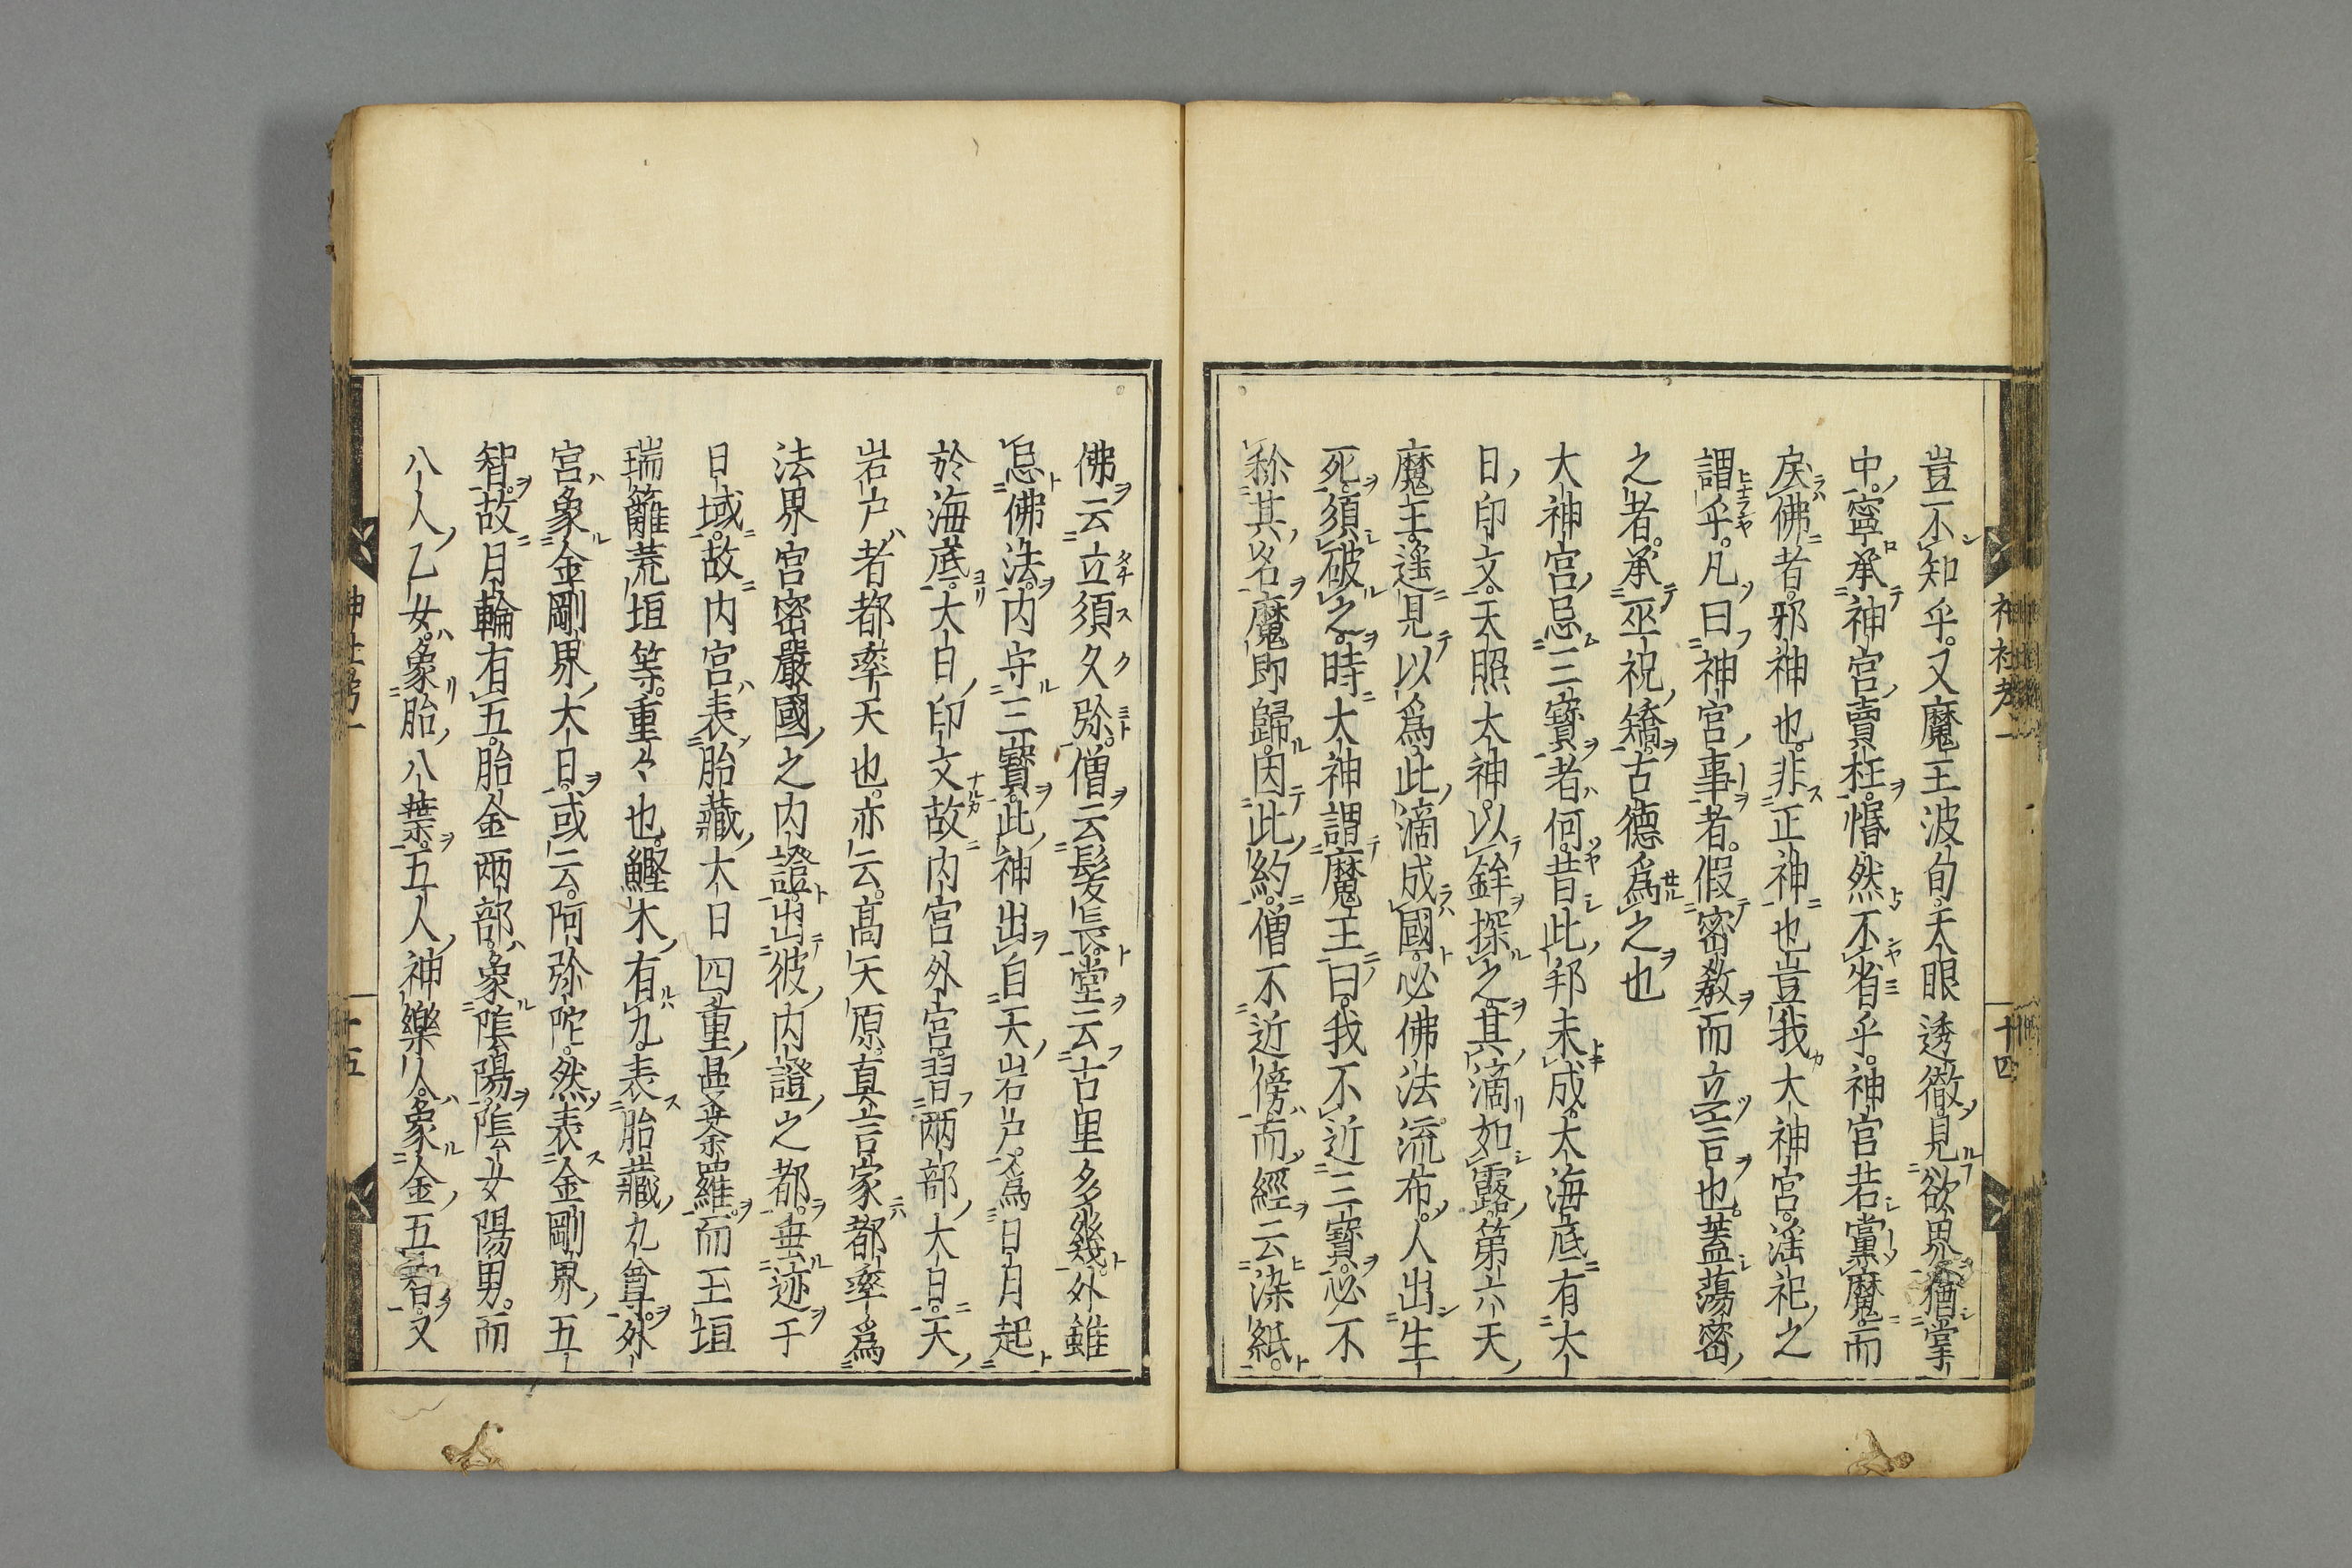 豈不知乎。又魔王波旬。天眼透徹見欲界猶掌
中。寧承神宮賣枉。惛然不省乎。神官若黨魔而
戾佛者。邪神也。非正神也。豈我大神宮。淫祀之
謂乎。凡曰神宮事者。假密教而立言也。蓋蕩密
之者。承巫祝矯。古德爲之也
大神宮忌三寶者何。昔此邦未成。大海底有大
日印文。天照太神。以鉾探之。其滴如露。第六天
魔王。遥見以爲。此滴成國。必佛法流布。人出生
死。須破之。時大神謂魔王曰。我不近三寶。必不
称其名。魔即歸。因此約。僧不近傍。而經云染紙。
佛云立須久弥。僧云髮長。堂云古里多幾。外雖
忌佛法。内守三寶。此神出自天岩戸。爲日月起
於海底。大日印文故。内宮外宮。習兩部大日。天
岩戸者都率天也。亦云。高天原。真言家都率爲
法界宮密嚴國之内證。出彼内證之都。垂迹于
日域。故内宮表胎藏大日四重曼荼羅。而玉垣
瑞籬荒垣等。重々也。鰹木有九。表胎藏九尊。外
宮象金剛界大日。或云。阿弥陀。然表金剛界五
智。故月輪有五。胎金兩部。象陰陽。陰女陽男。而
八人乙女。象胎八葉。五人神樂人。象金五智。又
神社考一
十四
神社考一
十五